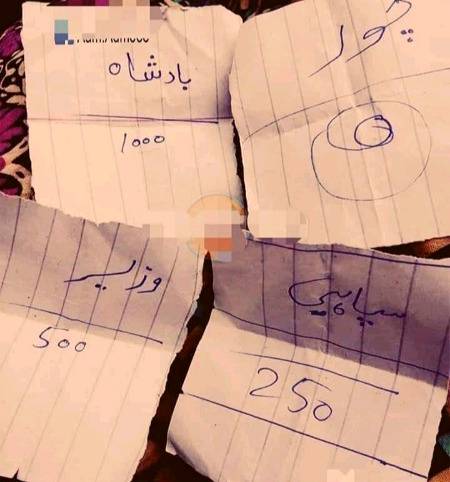 بادشاہ
1000
چور
0
وزیر
500
سپاہی
250